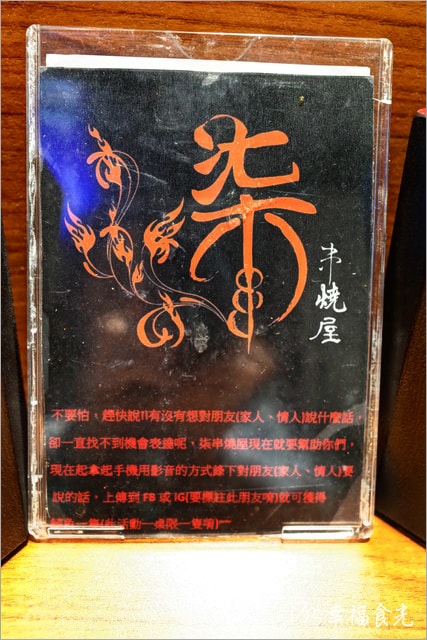 柒
串燒屋
不要怕，趕快說!!有沒有想對朋友(家人、情人)說什麼話，
卻一直找不到機會表達呢，柒串燒屋現在就要幫助你們，
現在起拿起手機用影音的方式錄下對朋友(家人、情人)要
說的話，上傳到 FB 或 IG(要標註此朋友唷)就可獲得
一隻(此活動一桌限一隻唷)~~
幸福食光